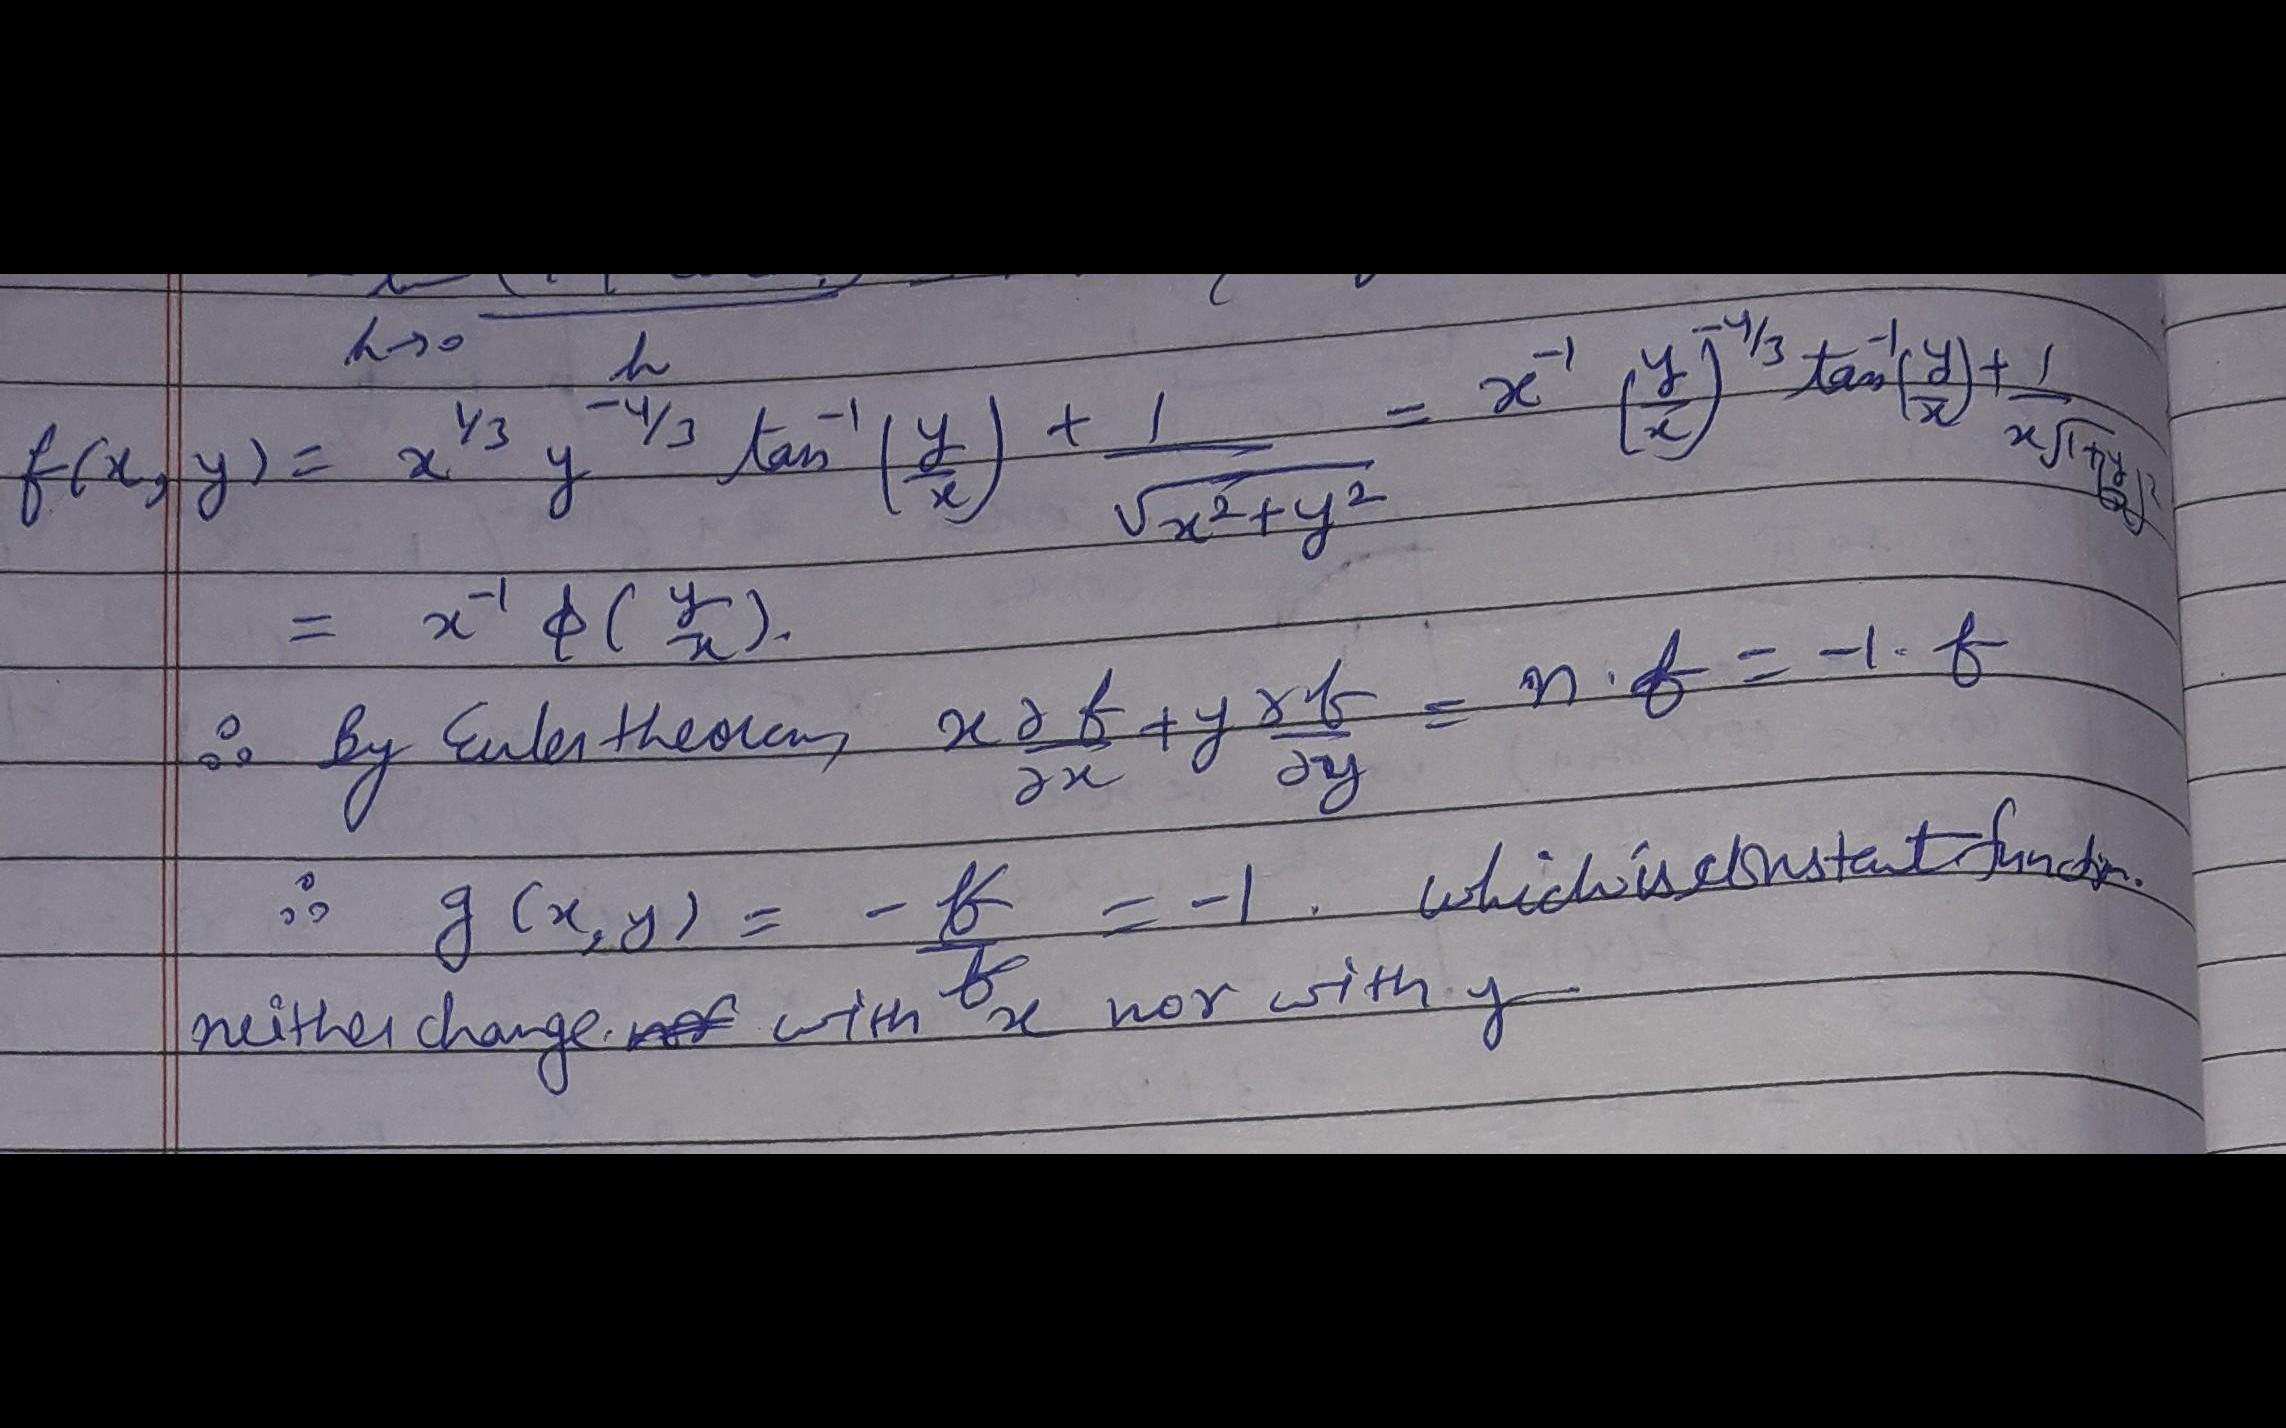 h→0 h
f(x, y) = x^{1/3} y^{-4/3} tan^{-1}(y/x) + 1/√(x²+y²) = x^{-1} (y/x)^{-4/3} tan^{-1}(y/x) + 1/(x√(1+(y/x)²))
= x^{-1} ϕ(y/x).
∴ By Euler theorem, x ∂f/∂x + y ∂f/∂y = n·f = -1·f
∴ g(x, y) = -f/f = -1. which is constant function.
neither change with x nor with y